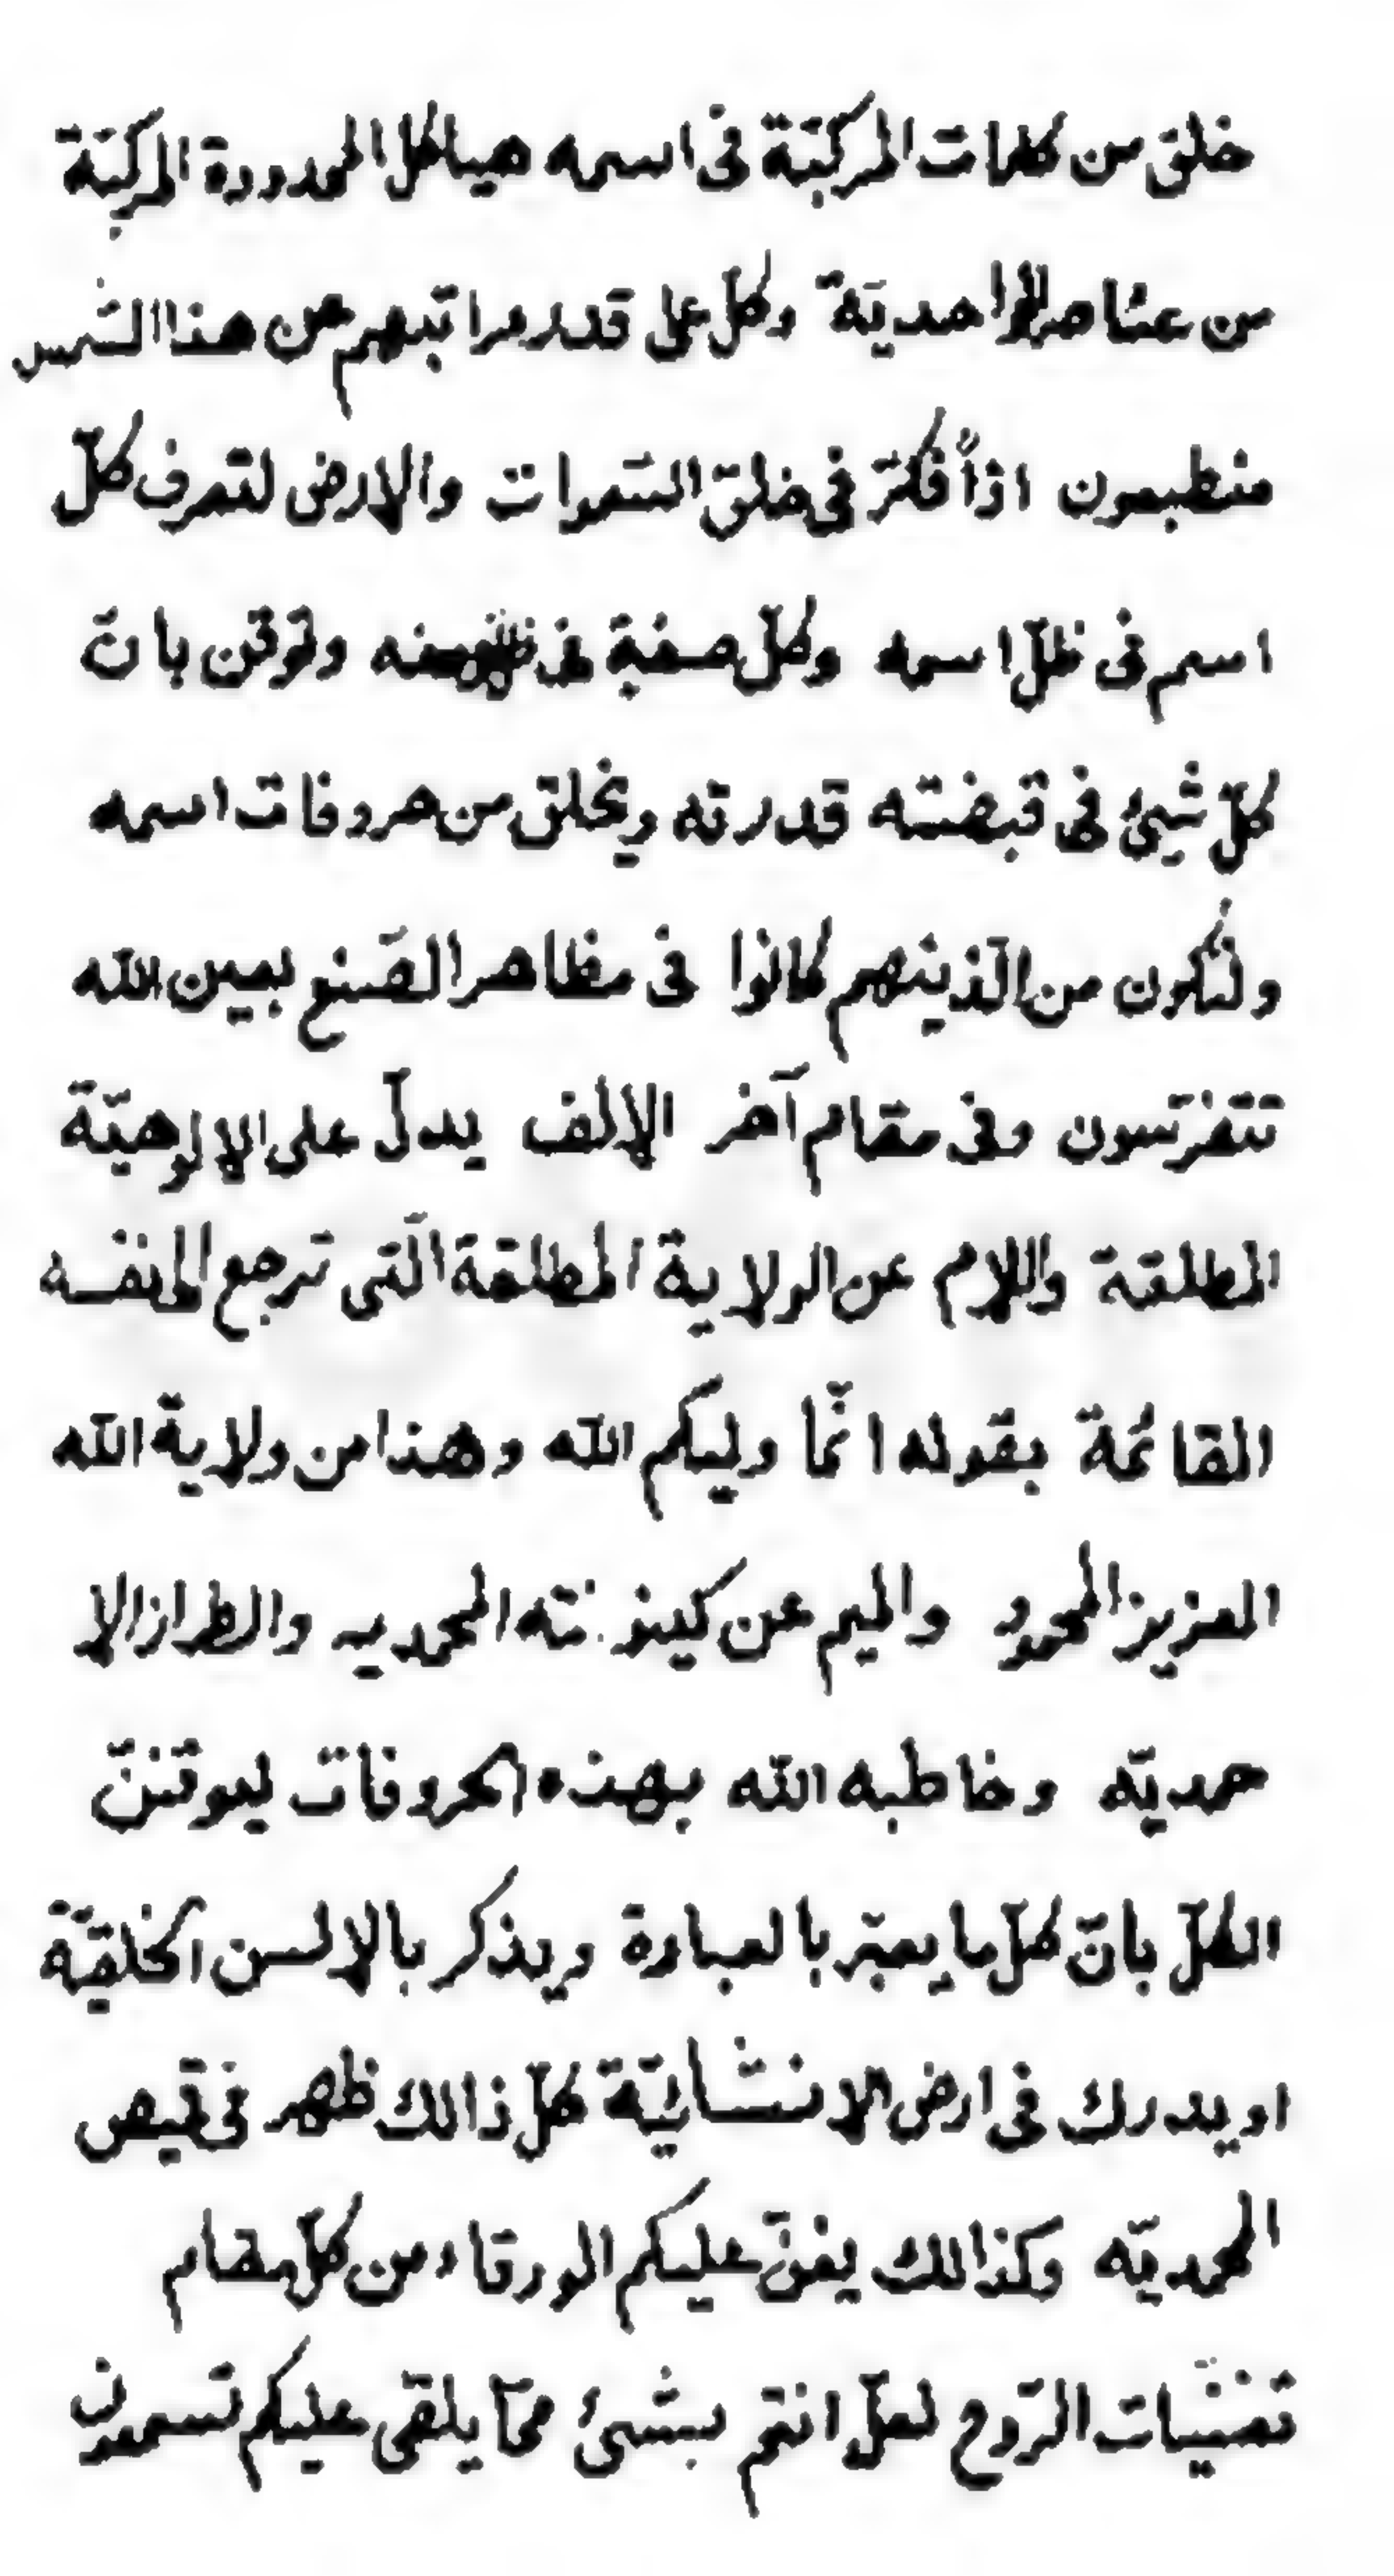 خلق من كلمات المركبّة فى اسمه هياكل المحدودة المركبّة
من عناصر الواحديّة وكلّ على قدر مراتبهم من هذا الشمس
منطبعون اذاً فكرّ فى خلق السّموات والارض لتعرف كلّ
اسم فى ظلّ اسمه وكلّ صفة فى ظل وصفه وتوقن بانّ
كلّ شيئ فى قبضته قدرته ويخلق من حروفات اسمه
ولتكون من الّذينهم كانوا فى مظاهر الصّنع بعين الله
تتفرّسون وفى مقام آخر الالف يدلّ على الالوهيّة
المطلقة واللام عن الولاية المطلقة الّتى ترجع الى نفسه
القائمة بقوله انّما وليكم الله وهذا من ولاية الله
العزيز المحمود والميم عن كينونته المحمديه والطراز الا
حمديّه وخاطبه الله بهذه الحروفات ليوقننّ
الكلّ بانّ كلّ ما يعبّر بالعبادة ويذكر بالالسن الخلقيّة
او يدرك فى ارض الانشائيّة كلّ ذالك ظهر فى قميص
المحمديّه وكذالك يغنّ عليكم الورقاء من كلّ مقام
تغنّيات الرّوح لعلّ انتم بشئ ممّا يلقى عليكم تسمعون